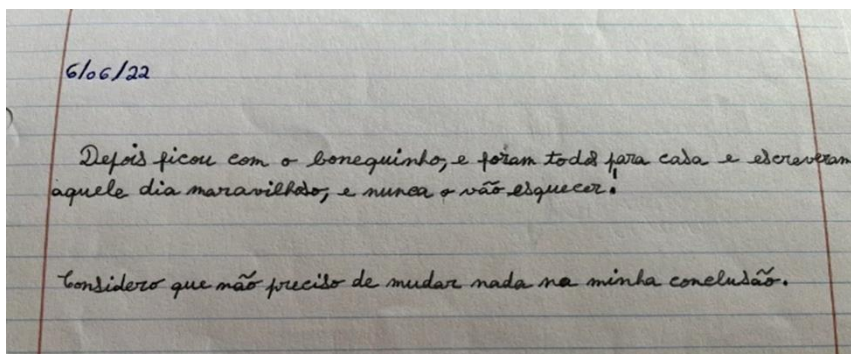 6/06/22
Depois ficou com o bonequinho, e foram todos para casa e escreveram
aquele dia maravilhoso, e nunca o vão esquecer!
Considero que não preciso de mudar nada na minha conclusão.